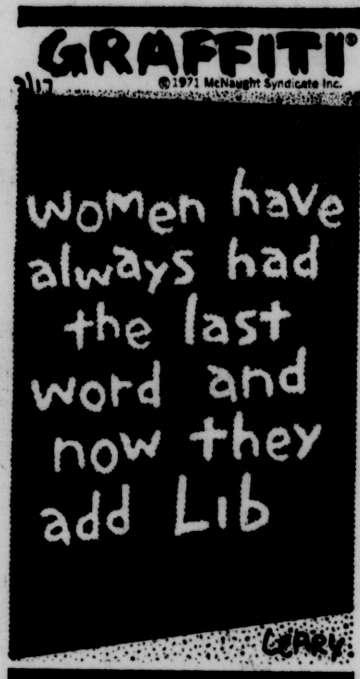 GRAFFITI®
©1971 McNaught Syndicate Inc.
women have
always had
the last
word and
now they
add Lib